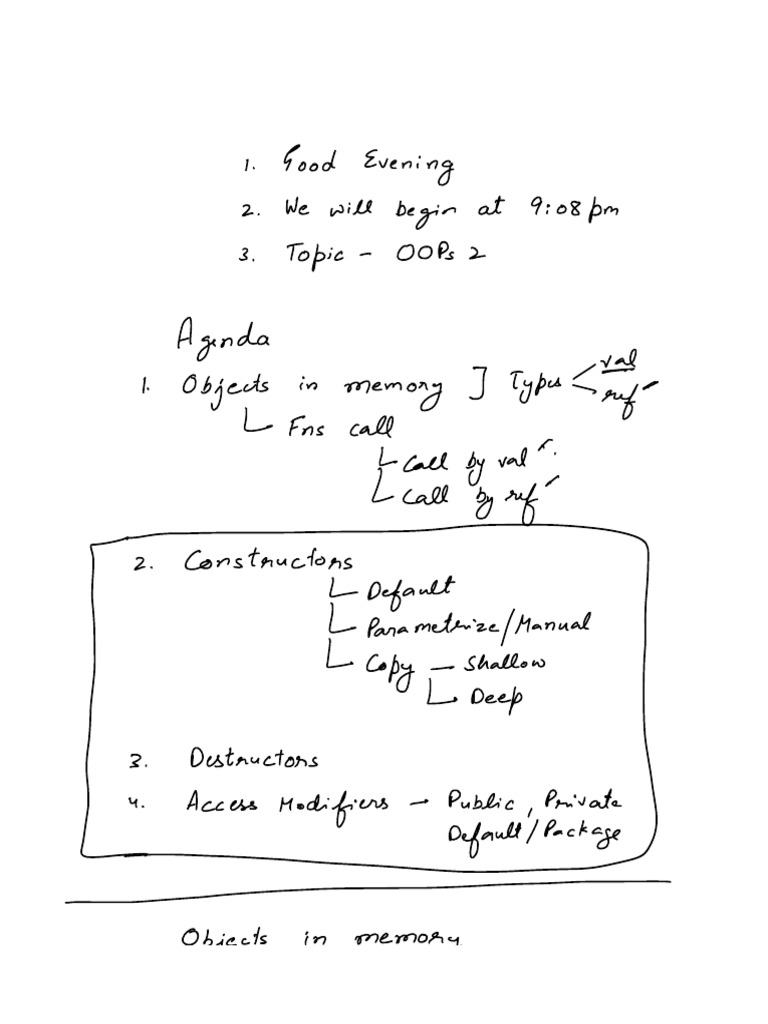 1. Good Evening
2. We will begin at 9:08 pm
3. Topic - OOPs 2
Agenda
1. Objects in memory ] Types < val
ref
Fns call
Call by val
Call by ref
2. Constructors
Default
Parametrize/Manual
Copy - Shallow
Deep
3. Destructors
4. Access Modifiers - Public, Private
Default/Package
Objects in memory